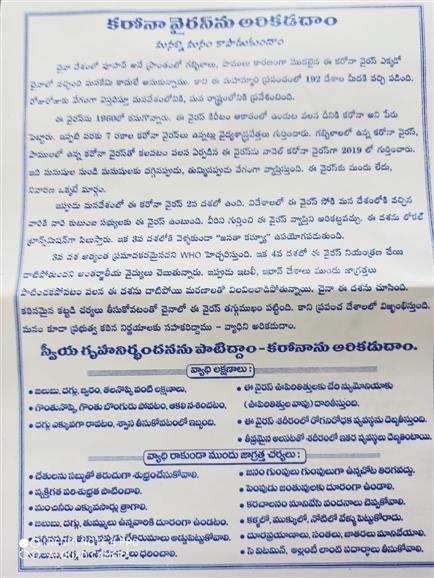 కరోనా వైరస్‌ను అరికడదాం
మనల్ని మనం కాపాడుకుందాం
చైనా దేశంలో వూహాన్ అనే ప్రాంతంలో గబ్బిలాలు, పాములు కారణంగా మొదలైన ఈ కరోనా వైరస్ ఎక్కడో
చైనాలో వచ్చింది మనకేమి కాదులే అనుకున్నాము. కాని ఈ మహమ్మారి ప్రపంచంలో 192 దేశాల మీదకి వచ్చి పడింది.
రోజురోజుకు వేగంగా విస్తరిస్తూ మనదేశంలోనికి, మన రాష్ట్రంలోనికి ప్రవేశించింది.
ఈ వైరస్‌ను 1960లో కనుగొన్నారు. ఈ వైరస్ కిరీటం ఆకారంలో ఉండుట వలన దీనికి కరోనా అని పేరు
పెట్టారు. ఇప్పటి వరకు 7 రకాల కరోనా వైరస్‌లు ఉన్నట్లు వైద్యశాస్త్రవేత్తలు గుర్తించారు. గబ్బిలాలలో ఉన్న కరోనా వైరస్,
పాములలో ఉన్న కరోనా వైరస్‌తో కలవటం వలన ఏర్పడిన ఈ వైరస్‌ను నావెల్ కరోనా వైరస్‌గా 2019 లో గుర్తించారు.
ఇది మనుషుల నుండి మనుషులకు దగ్గినప్పుడు, తుమ్మినప్పుడు వేగంగా వ్యాపిస్తుంది. ఈ వైరస్‌కు మందు లేదు,
నివారణ ఒక్కటే మార్గం.
ఇప్పుడు మనదేశంలో ఈ కరోనా వైరస్ 2వ దశలో ఉంది. విదేశాలలో ఈ వైరస్ సోకి మన దేశంలోకి వచ్చిన
వారికి వారి కుటుంబ సభ్యులకు ఈ వైరస్ ఉంటుంది. వీరిని గుర్తించి ఈ వైరస్ వ్యాప్తిని అరికట్టవచ్చు. ఈ దశను లోకల్
ట్రాన్స్‌మిషన్‌గా పిలుస్తారు. ఇక 3వ దశలోకి వెళ్ళకుండా "జనతా కర్ఫ్యూ" ఉపయోగపడుతుంది.
3వ దశ అత్యంత ప్రమాదకరమైనదని WHO హెచ్చరిస్తుంది. ఇక 4వ దశలో ఈ వైరస్ నియంత్రణ చేయి
దాటిపోతుందని అంతర్జాతీయ వైద్యులు చెబుతున్నారు. ఇప్పుడు ఇటలీ, ఇరాన్ దేశాలు ముందు జాగ్రత్తలు
పాటించకపోవటం వలన ఈ దశను దాటిపోయి మరణాలతో విలవిలలాడిపోతున్నాయి. చైనా ఈ దశను చూసింది.
కఠినమైన కట్టడి చర్యలు తీసుకోవటంతో చైనాలో ఈ వైరస్ తగ్గుముఖం పట్టింది. కాని ప్రపంచ దేశాలలో విజృంభిస్తుంది.
మనం కూడా ప్రభుత్వ కఠిన నిర్ణయాలకు సహకరిద్దాము - వ్యాధిని అరికడదాం.
స్వీయ గృహనిర్బంధనను పాటిద్దాం - కరోనాను అరికడుదాం.
వ్యాధి లక్షణాలు :
• జలుబు, దగ్గు, జ్వరం, తలనొప్పి వంటి లక్షణాలు,
• గొంతునొప్పి, గొంతు బొంగురు పోవటం, ఆకలి నశించటం,
• దగ్గు ఎక్కువగా రావటం, శ్వాస తీసుకోవటంలో ఇబ్బంది.
• ఈ వైరస్ ఊపిరితిత్తులకు చేరి న్యుమోనియాకు
(ఊపిరితిత్తుల వాపు) దారితీస్తుంది.
• ఈ వైరస్ శరీరంలో రోగనిరోధక వ్యవస్థను దెబ్బతీస్తుంది.
• తీవ్రమైన అలసటతో శరీరంలో ఇతర వ్యవస్థలు దెబ్బతింటాయి.
వ్యాధి రాకుండా ముందు జాగ్రత్త చర్యలు :
• చేతులను సబ్బుతో తరుచుగా శుభ్రంచేసుకోవాలి.
• వ్యక్తిగత పరిశుభ్రత పాటించాలి.
• మంచినీరు ఎక్కువసార్లు త్రాగాలి.
• జలుబు, దగ్గు, తుమ్ములు ఉన్నవారికి దూరంగా ఉండటం.
అడ్డుపెట్టుకోవాలి.
ధరించాలి.
• జనం గుంపులు గుంపులుగా ఉన్నచోట తిరగవద్దు.
• పెంపుడు జంతువులకు దూరంగా ఉండాలి.
• కరచాలనం మానివేసి వందనాలు చెప్పుకోవాలి.
• కళ్ళలో, ముక్కులో, నోటిలో వేళ్ళు పెట్టుకోరాదు.
• దూరప్రయాణాలు, సంతలు, జాతరలు మానివేయాలి.
• సి విటమిన్, అల్లంటీ లాంటి పదార్థాలు తీసుకోవాలి.